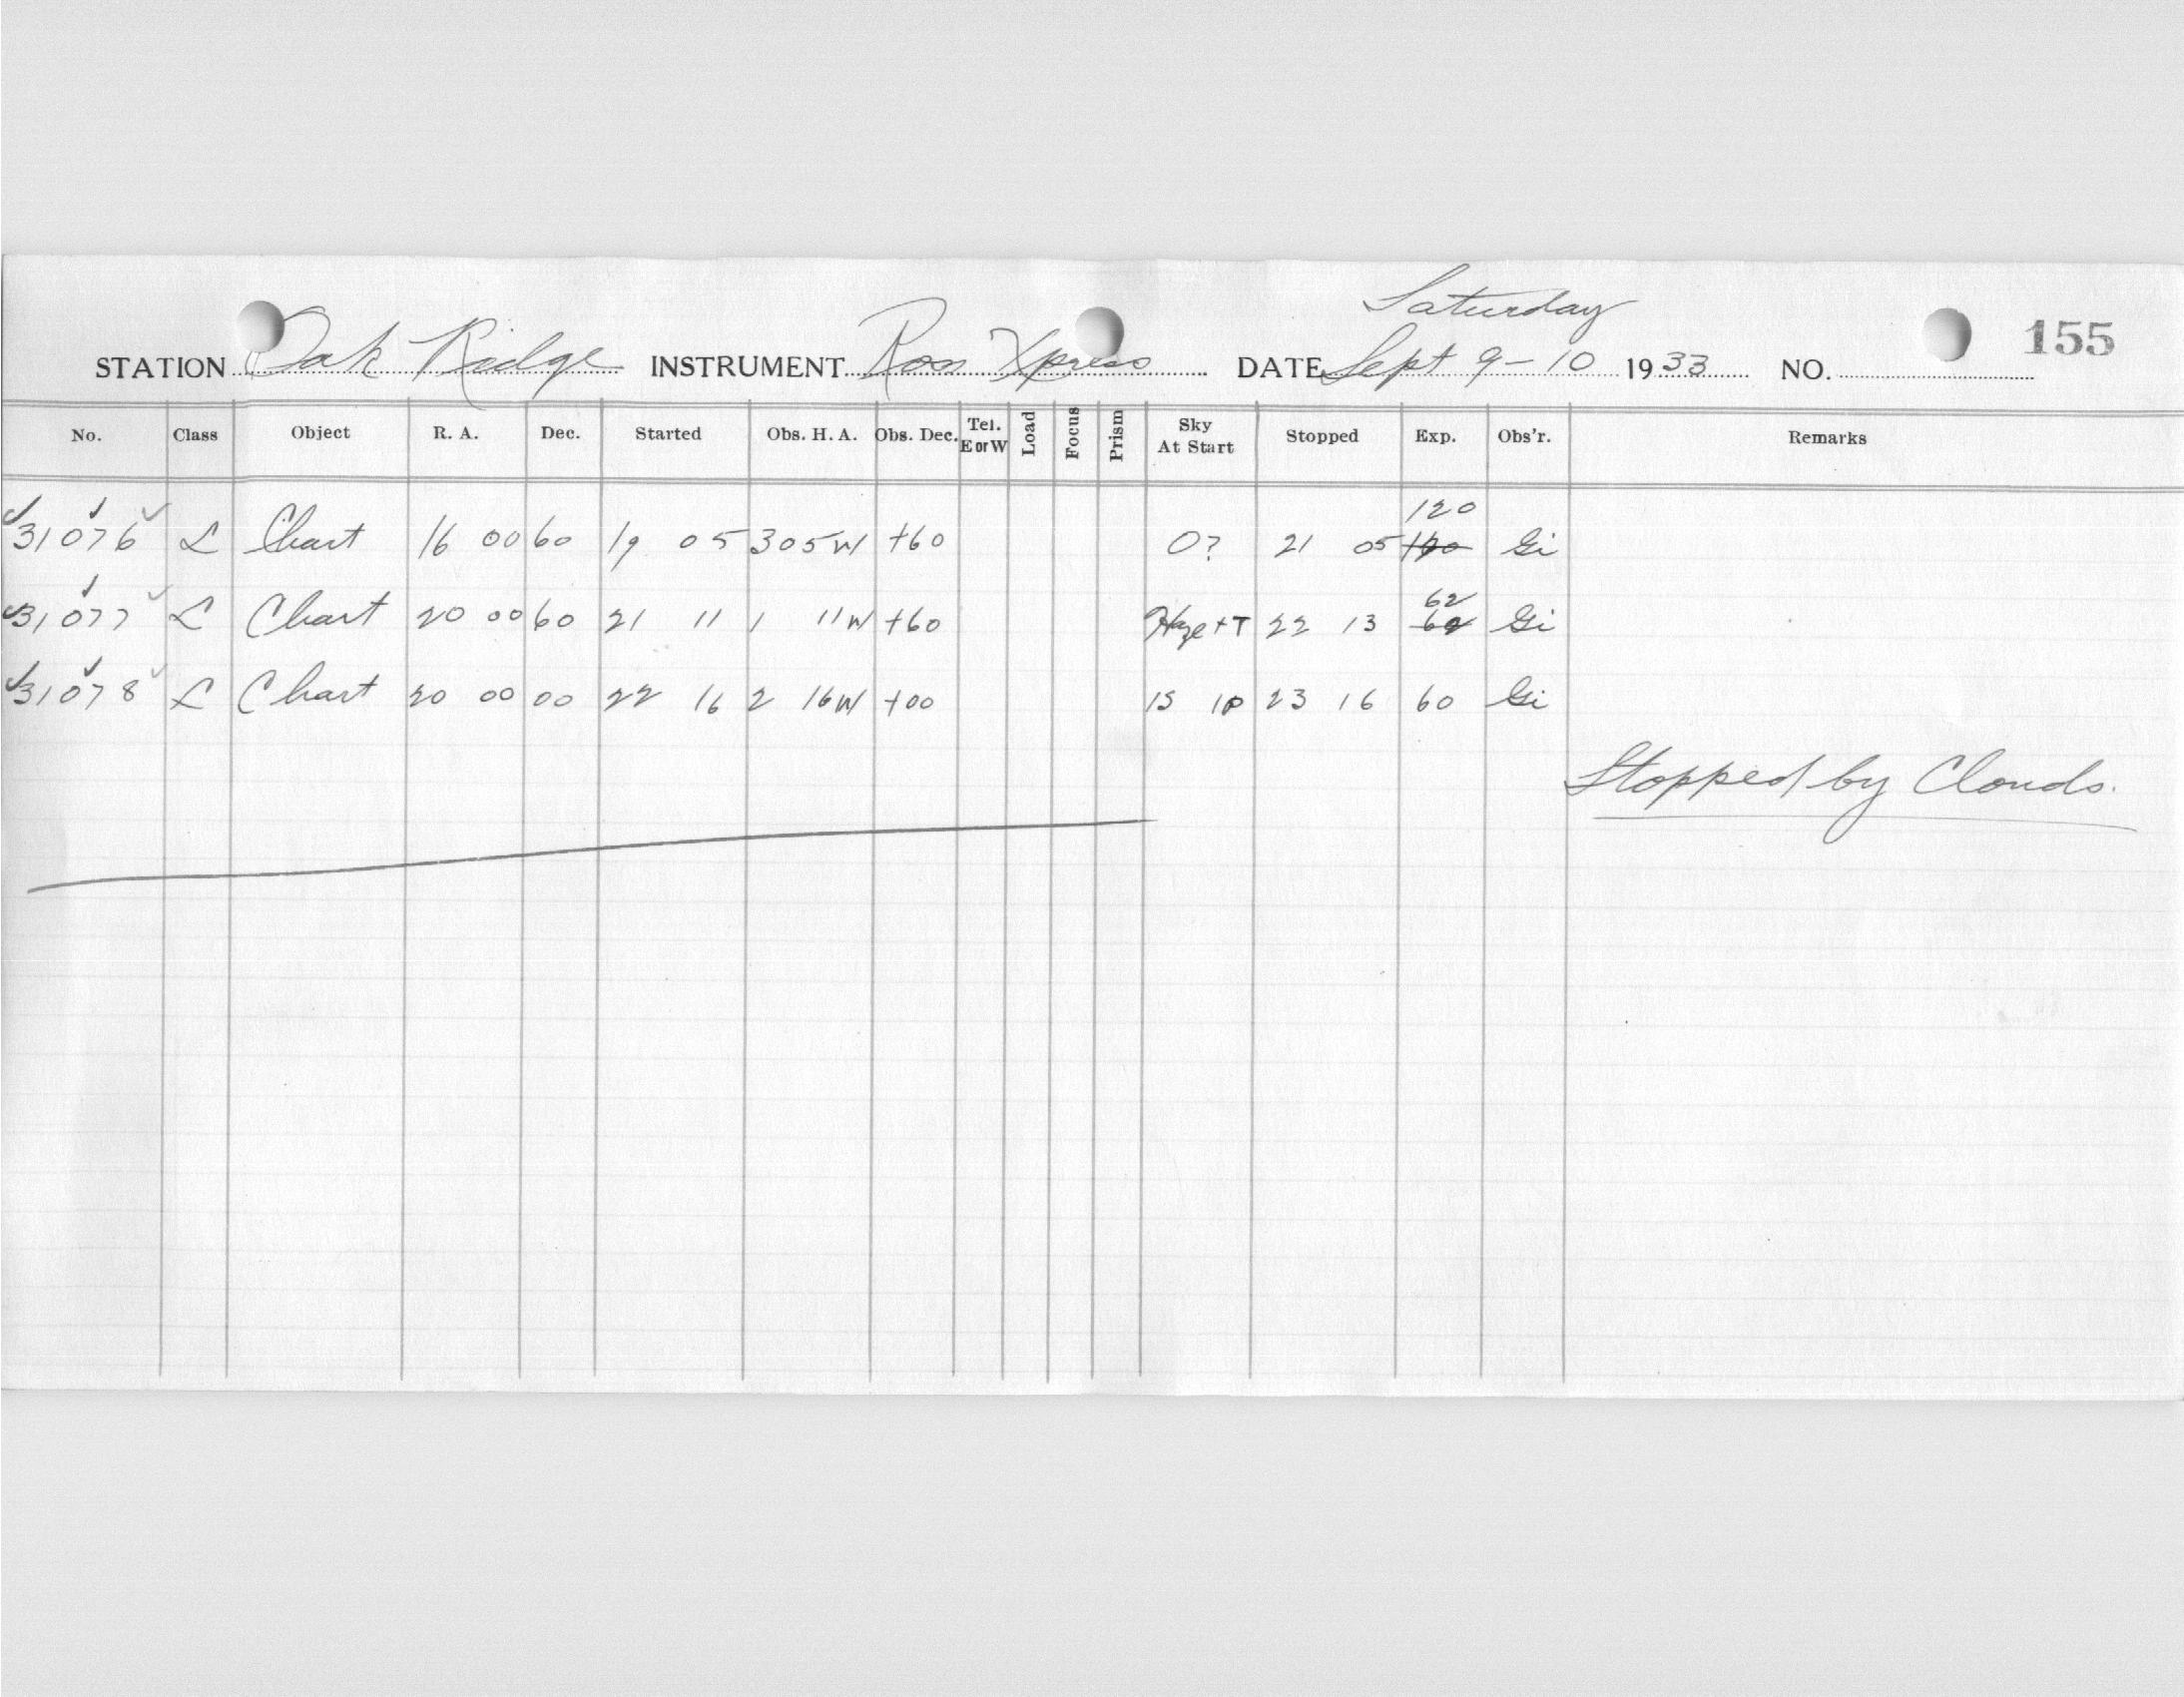 Saturday
STATION Oak Ridge INSTRUMENT Ross Xpress DATE Sept 9-10 1933 NO. 155
No. Class Object R. A. Dec. Started Obs. H. A. Obs. Dec. Tel. E or W Load Focus Prism Sky At Start Stopped Exp. Obs'r. Remarks
120
31076 L Chart 16 00 60 19 05 305W +60 0? 21 05 Gi
62
31077 L Chart 20 00 60 21 11 1 11W +60 Haze + T 22 13 Gi
31078 L Chart 20 00 00 22 16 2 16W +00 23 16 60 Gi
Stopped by Clouds.